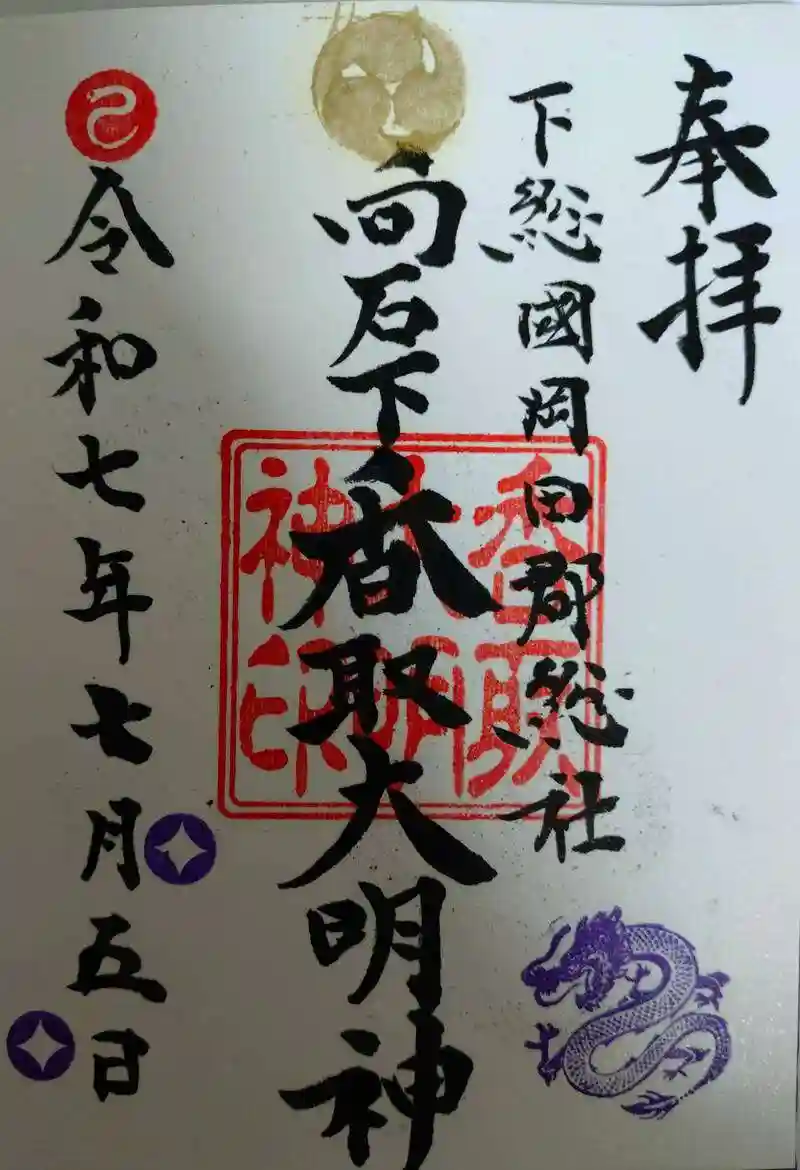 奉拝
下総國岡田郡総社
向石下
香取大明神
香取大明神印
巳
令和七年七月五日